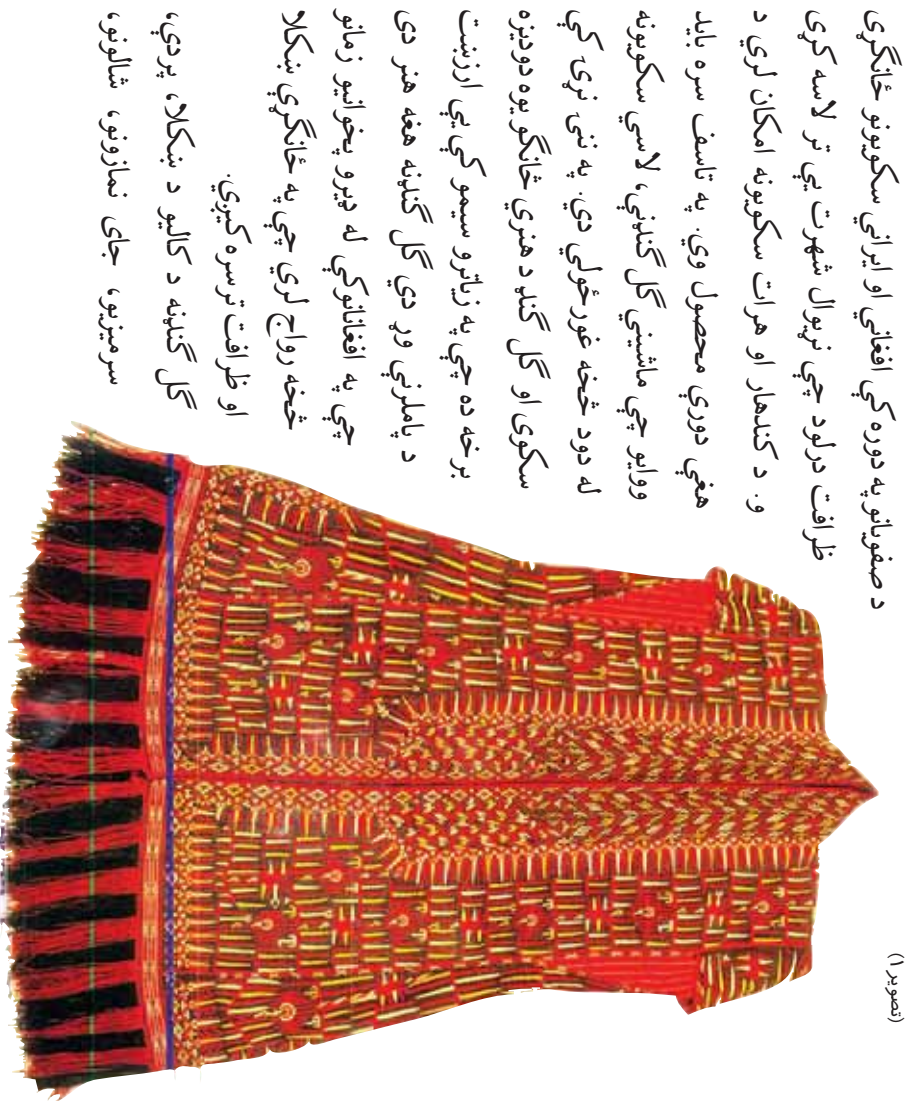 د صفویانو په دوره کې افغاني او ایراني سکویونو ځانګړی
ظرافت درلود چې نړیوال شهرت یې تر لاسه کړی
و. د کندهار او هرات سکویونه امکان لري د
هغې دورې محصول وي. په تاسف سره باید
ووایو چې ماشیني ګل ګنډنې، لاسي سکویونه
له دود څخه غورځولي دي. په ننۍ نړۍ کې
سکوی او ګل ګنډ د هنري څانګو یوه دودیزه
برخه ده چې په زیاترو سیمو کې یې ارزښت
د پاملرنې وړ دی ګل ګنډنه هغه هنر دی
چې په افغانانو کې له ډېرو پخوانیو زمانو
څخه رواج لري چې په ځانګړې ښکلا
او ظرافت تر سره کېږي.
ګل ګنډنه د کالیو د ښکلا، پردې،
سرمیزیو، جای نمازونو، شالونو،
(تصویر ۱)